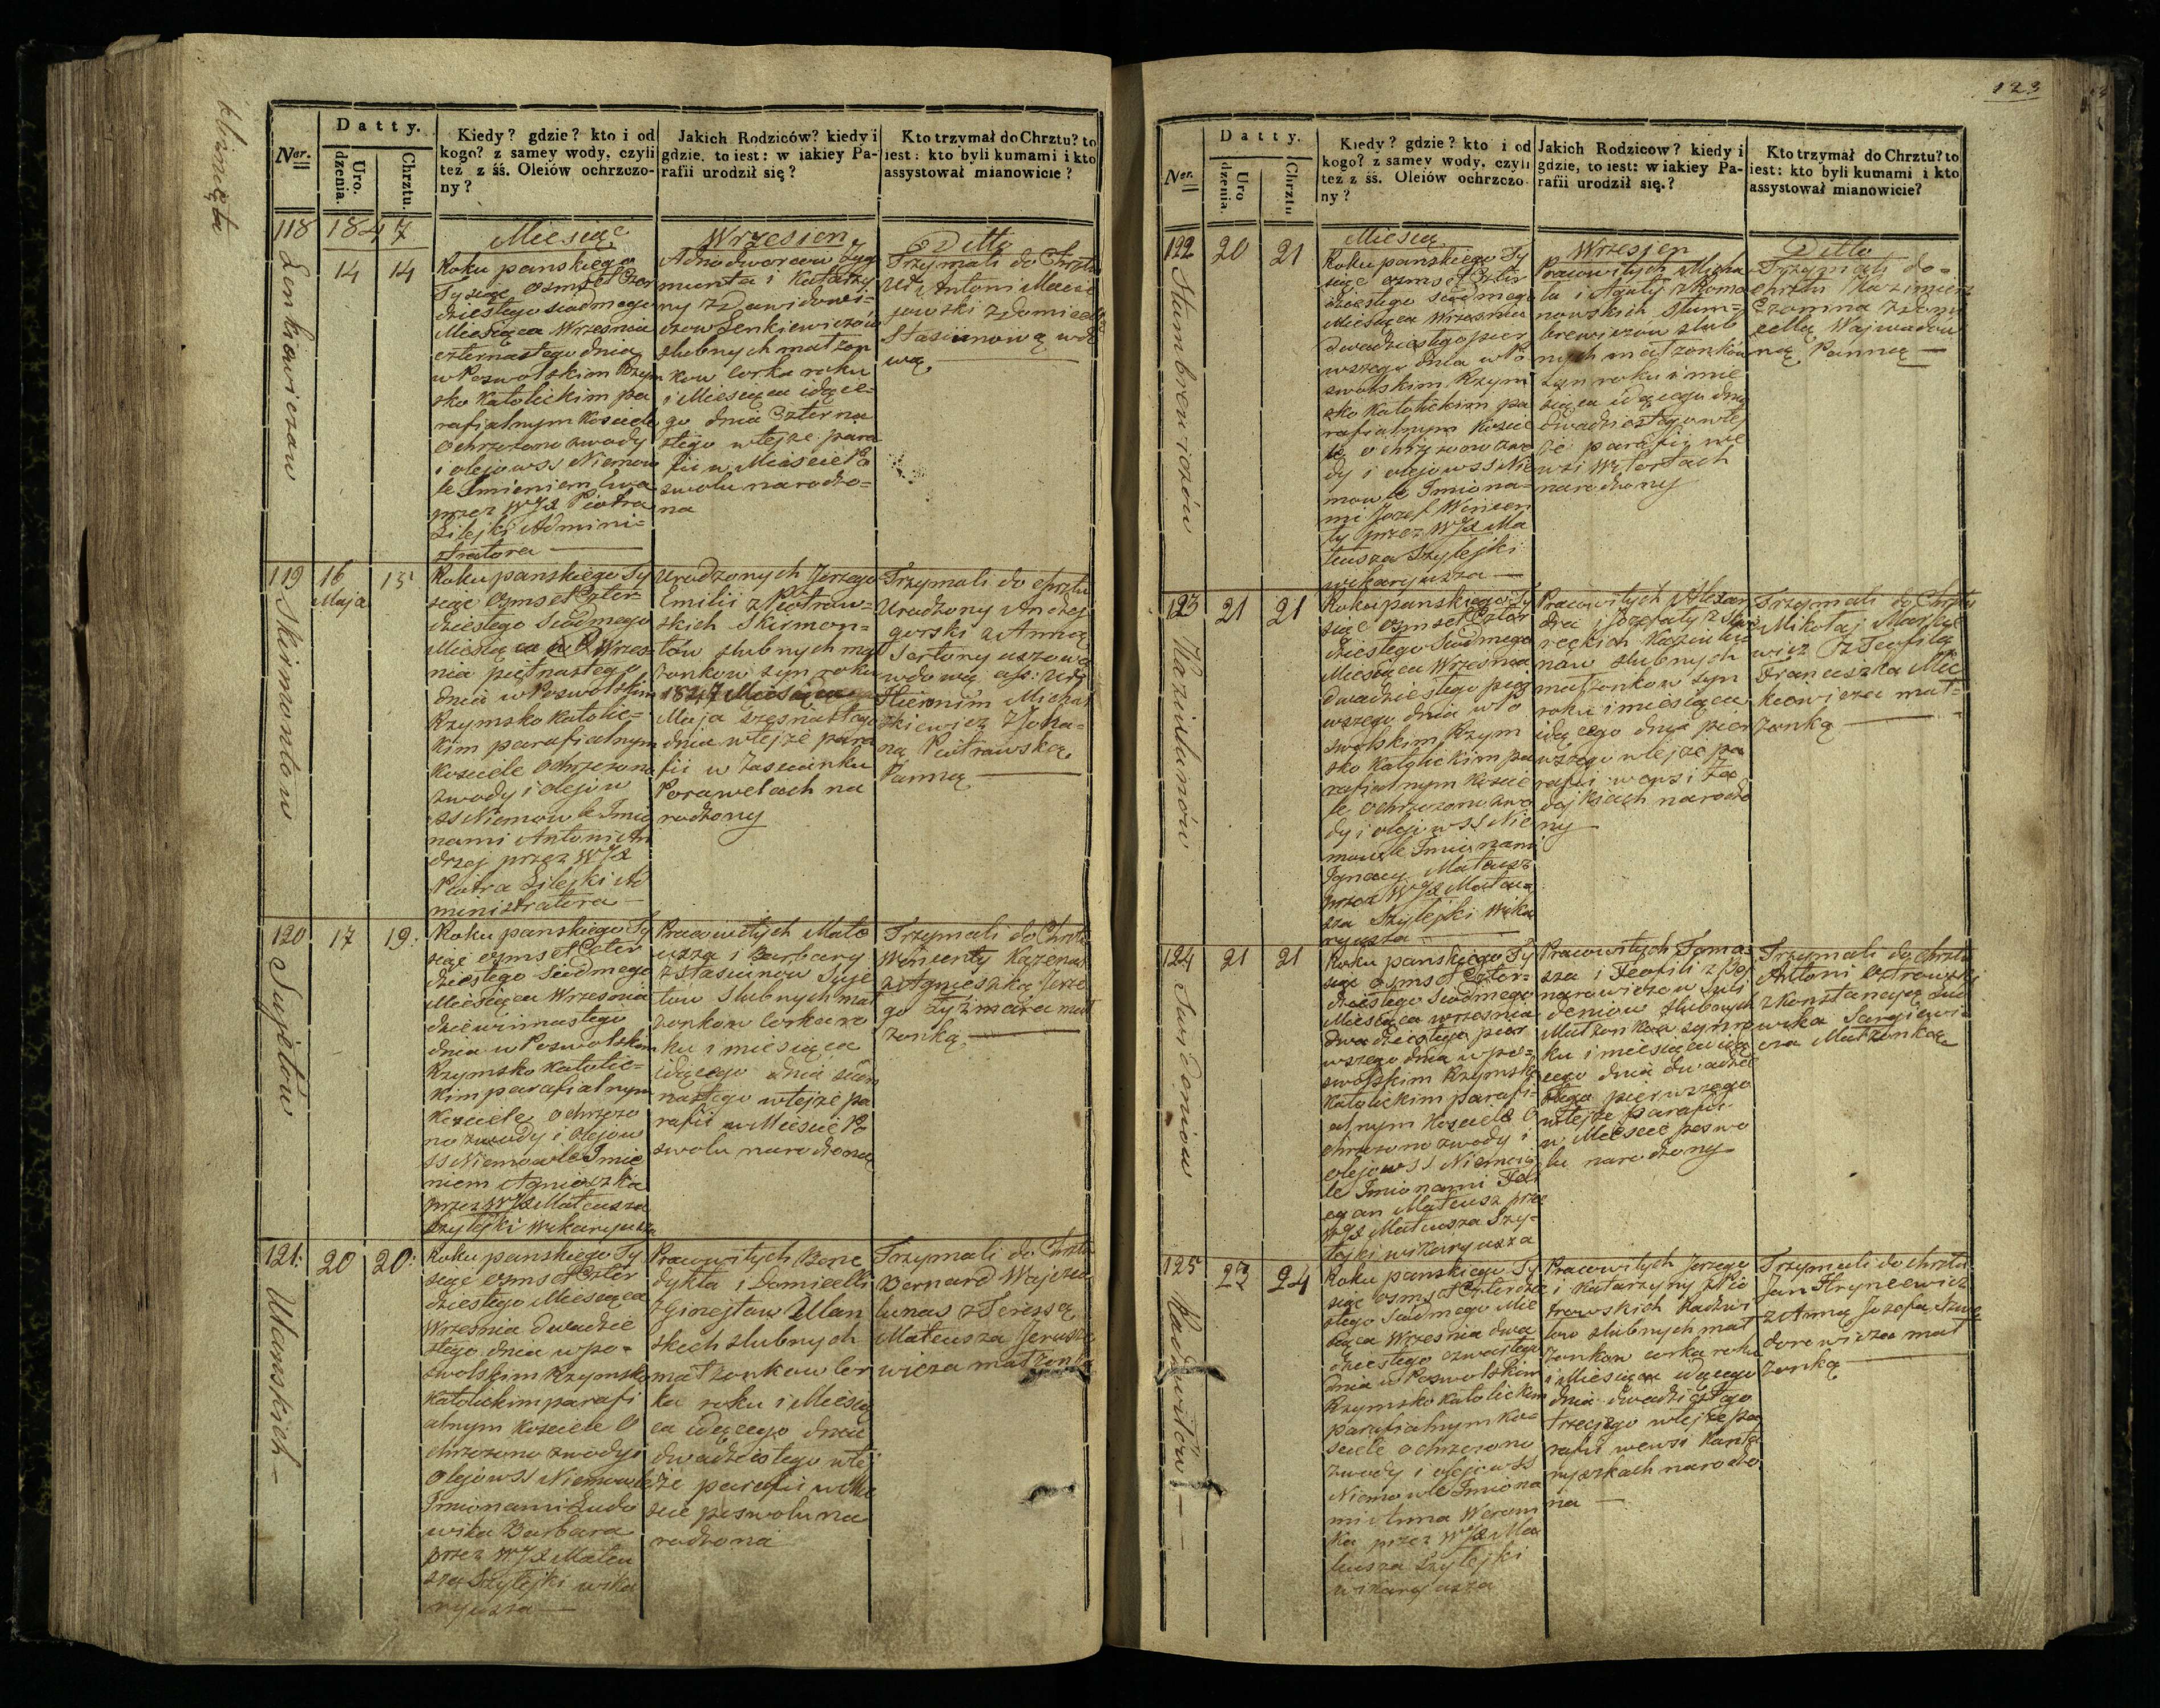 bliznięta
Ner.
Datty.
Uro.
dzenia.
Chrztu.
Kiedy? gdzie? kto i od
kogo? z samey wody, czyli
tez z śś. Oleiów ochrzczo-
ny?
Jakich Rodziców? kiedy i
gdzie, to iest: w iakiey Pa-
rafii urodził się?
Kto trzymał do Chrztu? to
iest: kto byli kumami i kto
assystował mianowicie?
118
1847
14
14
Lenkiewiczow
Miesiąc
Roku panskiego
Tysiąc osmset Czter
dziestego siodmego
Miesiąca Wrzesnia
czternastego dnia
w Poswolskim Rzym
sko Katolickim pa
rafialnym Kosciele
Ochrzczono z wody
i olejow SS Niemow
le Imieniem Ewa
przez WJX Piotra
Lilejki Admini=
stratora
Wrzesien
Adnodworcow Zyg
munta i Katarzy
ny z Dawidowi=
czow Lenkiewiczow
slubnych małzon
kow corka roku
i Miesiąca idące=
go dnia Czterna
stego w tejze para
fii w Miescie Po
swolu narodzo=
na
Ditto
Trzymali do Chrztu
Antoni Macie
jowski z Domicellą
Stasiunową wdo
wą
119
16
Maja
15
Skirmontow
Roku panskiego Ty
siąc osmset Czter=
dziestego Siodmego
Miesiąca Wrzes
nia piętnastego
dnia w Poswolskim
Rzymsko katolic=
kim parafialnym
Kosciele Ochrzczono
z wody i olejow
SS Niemowle Imio
nami Antoni An
drzej przez WJX
Piotra Lilejki Ad
ministratora
Urodzonych Jerzego
Emilii z Piotrow=
skich Skirmon=
tow slubnych mał
zonkow syn roku
1847 Miesiąca
Maja szesnastego
dnia w tejze para
fii w Zascianku
Porawelach na
rodzony
Trzymali do Chrztu
Urodzony Andrzej
gorski z Anną
wdową ass: Urz
Hieronim Michal
kiewicz z Joha=
ną Piotrowską
Panną
120
17
19
Sugietow
Roku panskiego Ty
siąc osmset Czter
dziestego Siodmego
Miesiąca Wrzesnia
dziewiętnastego
dnia w Poswolskim
Rzymsko katolic=
kim parafialnym
Kosciele ochrzczo
no z wody i olejow
SS Niemowle Imie
niem Agnieszka
przez WJX Mateusza
Szylejki Wikaryusza
Pracowitych Mate
usza i Barbary
z Stasiunow Sugie
tow Slubnych mał
zonkow corka ro
ku i miesiąca
idącego dnia siedm
nastego w tejze pa
rafii w Miescie Po
swolu narodzona
Trzymali do Chrztu
Wincenty Kazenas
z Agnieszką Jerze
go Zyzmara mał
zonką
121
20
20
Ulanskich
Roku panskiego Ty
siąc osmset Czter
dziestego Miesiąca
Wrzesnia dwudzie
stego dnia w po=
swolskim Rzymsko
katolickim parafi
alnym Kosciele O
chrzczono z wody i
Olejow SS Niemowle
Imionami Ludo
wika Barbara
przez WJX Mateu
sza Szylejki wika
ryusza
Pracowitych Bene
dykta i Domicelli
z Ginejtow Ulan
skich slubnych
małzonkow cor
ka roku i Miesią
ca idącego dnia
dwudziestego w tej
ze parafii w Mie
scie poswolu na
rodzona
Trzymali do Chrztu
Bernard Wajcze
lunas z Teressą
Mateusza Jerusze
wicza małzonką
123
Ner.
Datty.
Uro
dzenia.
Chrztu
Kiedy? gdzie? kto i od
kogo? z samey wody, czyli
tez z śś. Oleiów ochrzczo-
ny?
Jakich Rodzicow? kiedy i
gdzie, to iest: w iakiey Pa-
rafii urodził się.?
Kto trzymał do Chrztu? to
iest: kto byli kumami i kto
assystował mianowicie?
122
20
21
Stumbrewiczow
Miesiąc
Roku panskiego Ty
siąc osmset Czter
dziestego siodmego
Miesiąca Wrzesnia
dwudziestego pier
wszego dnia w Po
swolskim Rzym
sko Katolickim pa
rafialnym Koscie
le ochrzczono z wo
dy i olejow SS Nie
mowle Imiona=
mi Jozef Wincen
ty przez WJX Ma
teusza Szylejki
wikaryusza
Wrzesien
Pracowitych Micha
ła i Agaty z Roma
nowskich Stum=
brewiczow slub
nych małzonkow
syn roku i mie
siąca idącego dnia
dwudziestego w tej
ze parafii we
wsi
narodzony
Ditto
Trzymali do=
chrztu Kazimierz
Czomna z Domi
cellą Wajwadow
ną Panną
123
21
21
Kaziulunow
Roku panskiego Ty
siąc osmset Czter
dziestego Siodmego
Miesiąca Wrzesnia
Dwudziestego pier
wszego dnia w Po
swolskim Rzym
sko Katolickim pa
rafialnym Koscie
le Ochrzczono z wo
dy i olejow SS Nie
mowle Imionami
Ignacy Mateusz
przez WJX Mateu
sza Szylejki Wika
ryusza
Pracowitych Alexan
dra i Jozefaty z
reckich Kaziulu
now slubnych
małzonkow syn
roku i miesiąca
idącego dnia pier
wszego w tejze pa
rafii w wsi Za
dejkiach narodzo
ny
Trzymali do Chrztu
Mikołaj Mackie
wicz z Teofilą
Franciszka Mic
kiewicza mał=
zonką
124
21
21
Swidoniow
Roku panskiego Ty
siąc osmset Czter=
dziestego Siodmego
Miesiąca wrzesnia
dwudziestego pier
wszego dnia w po=
swolskim Rzymsko
katolickim parafi=
alnym Kosciele O
chrzczono z wody i
olejow SS Niemow
le Imionami Feli
cyan Mateusz prze
WJX Mateusza Szy=
lejki wikaryusza
Pracowitych Toma=
sza i Teofili z Bej
narowiczow Swi
doniow slubnych
Małzonkow syn ro
ku i miesiąca idą
cego dnia dwudzie
stego pierwszego
w tejze parafii
w Miescie poswo
lu narodzony
Trzymali do chrztu
Antoni Ostrowski
z Konstancyą Lud
wika Sargiewi
cza Małzonką
125
23
24
Radziwiłow
Roku panskiego Ty
siąc osmset Czterdzie
stego Siodmego Mie
siąca Wrzesnia dwu
dziestego czwartego
dnia w Poswolskim
Rzymsko katolickim
parafialnym Ko=
sciele ochrzczono
z wody i olejow SS
Niemowle Imiona
mi Anna Weroni
ka przez WJX Ma
teusza Szylejki
wikaryusza
Pracowitych Jerzego
i Katarzyny z Pio
trowskich Radziwi
łow slubnych mał
zonkow corka roku
i Miesiąca idącego
dnia dwudziestego
trzeciego w tejze pa
rafii we wsi Kanty
ryszkach narodzo
na
Trzymali do chrztu
Jan Hryncewicz
z Anną Jozefa
dorowicza mał
zonką